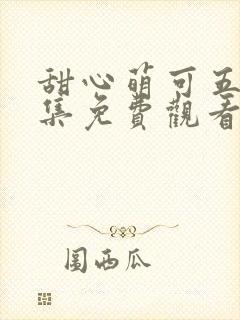 甜心萌可五
集免費觀看
圍西瓜